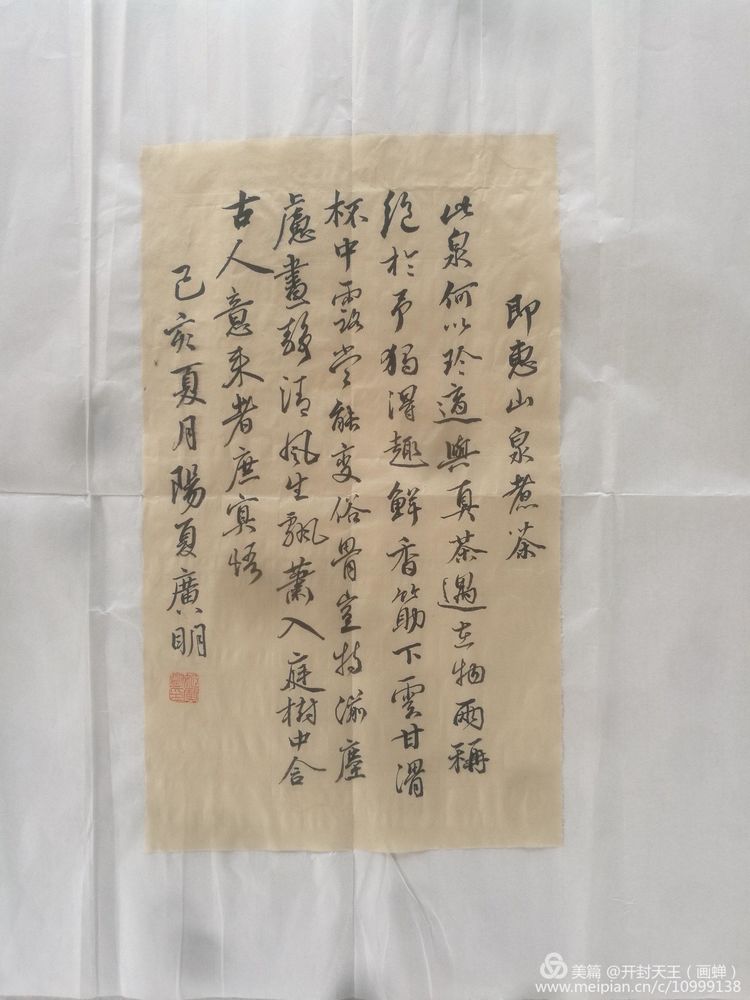 即惠山泉煮茶
此泉何以珍適與真茶遇在物兩稱
絕於予獨得趣鮮香筯下雲甘滑
杯中露當能變俗骨豈特湔塵
慮晝靜清風生飄蕭入庭樹中含
古人意來者庶冥悟
己亥夏月陽夏廣明
美篇 @开封天王（画蝉）
www.meipian.cn/c/10999138